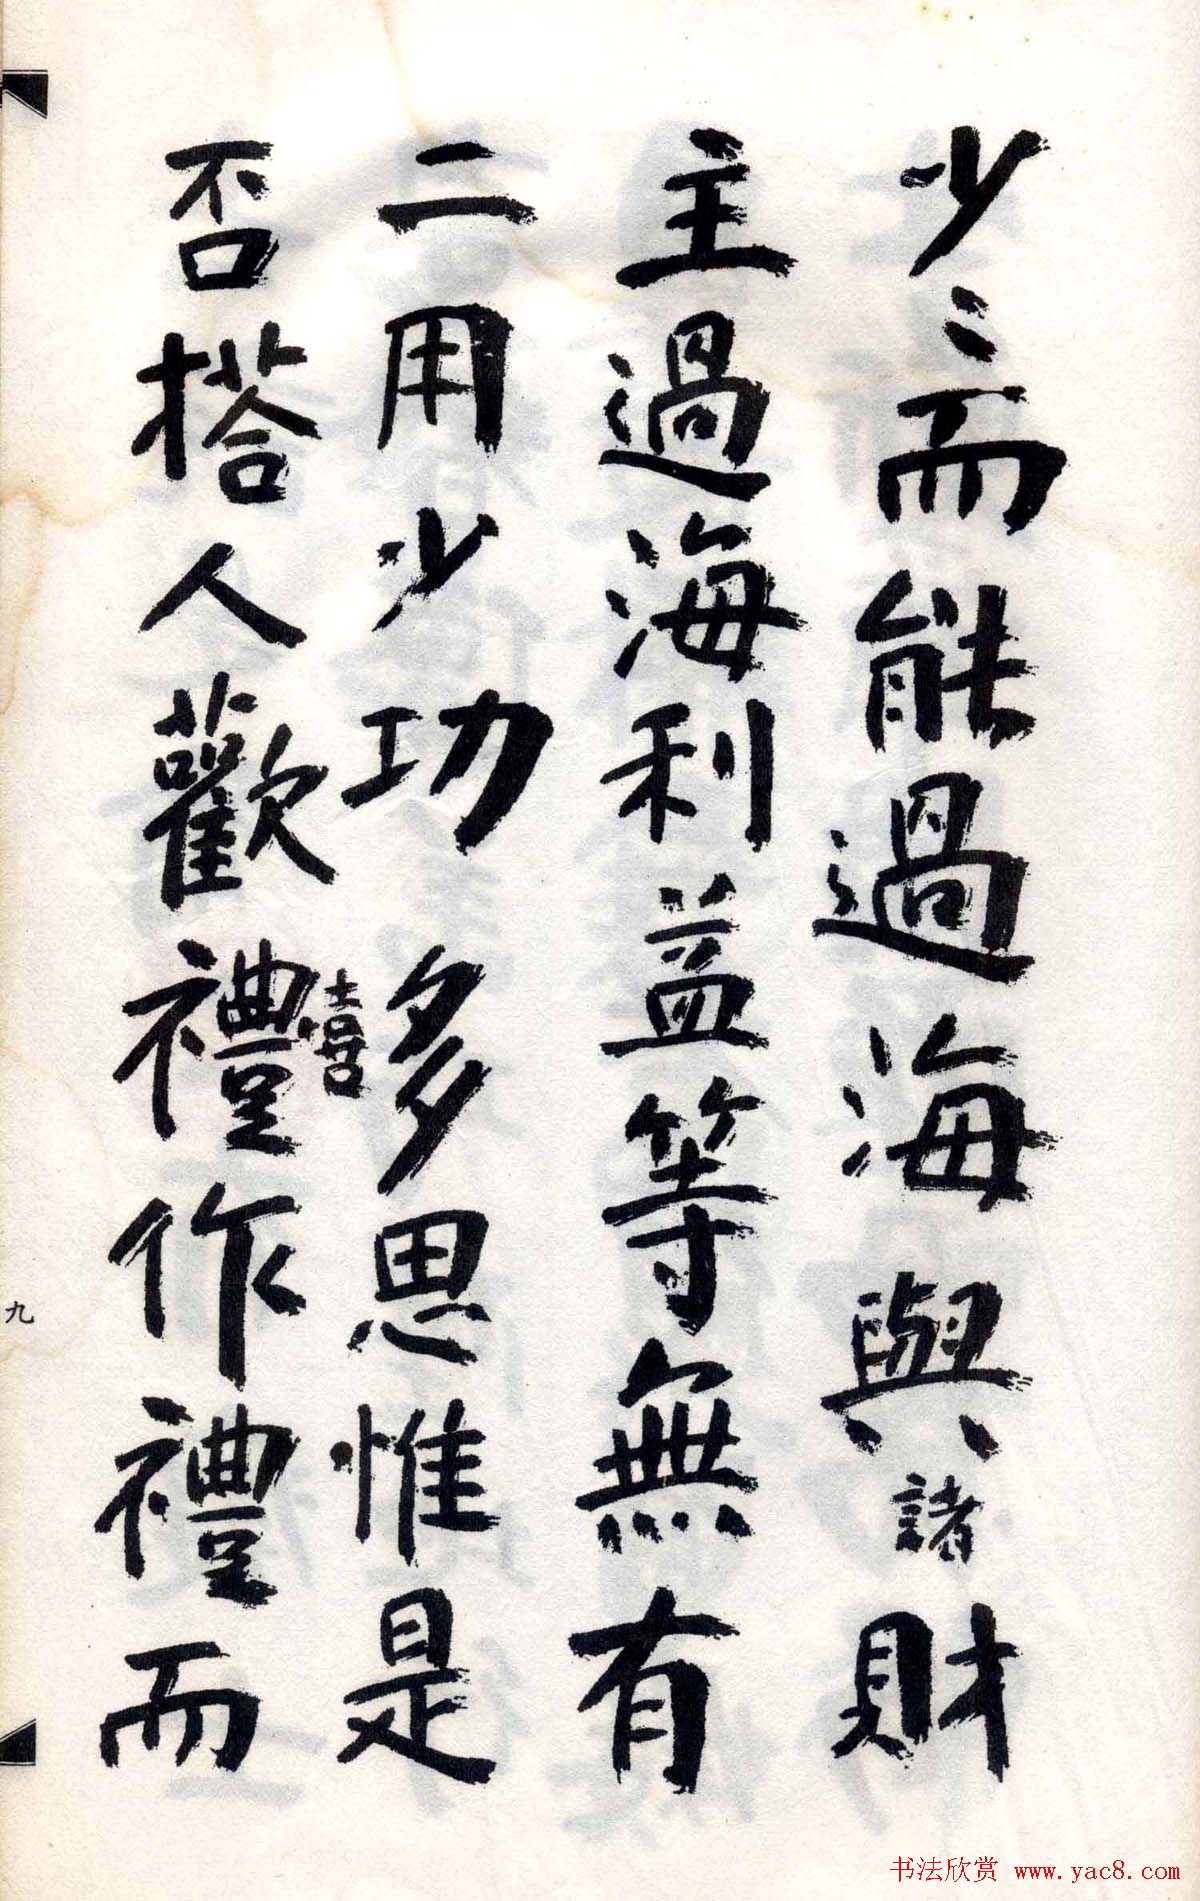 少〻而能過海與諸財
主過海利益等無有
二用少功多思惟是
否搭人歡喜禮作禮而
九
书法欣赏 www.yac8.com